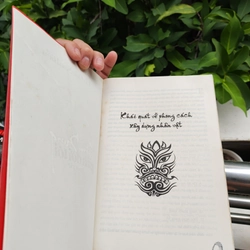 Khái quát về phong cách
xây dựng nhân vật